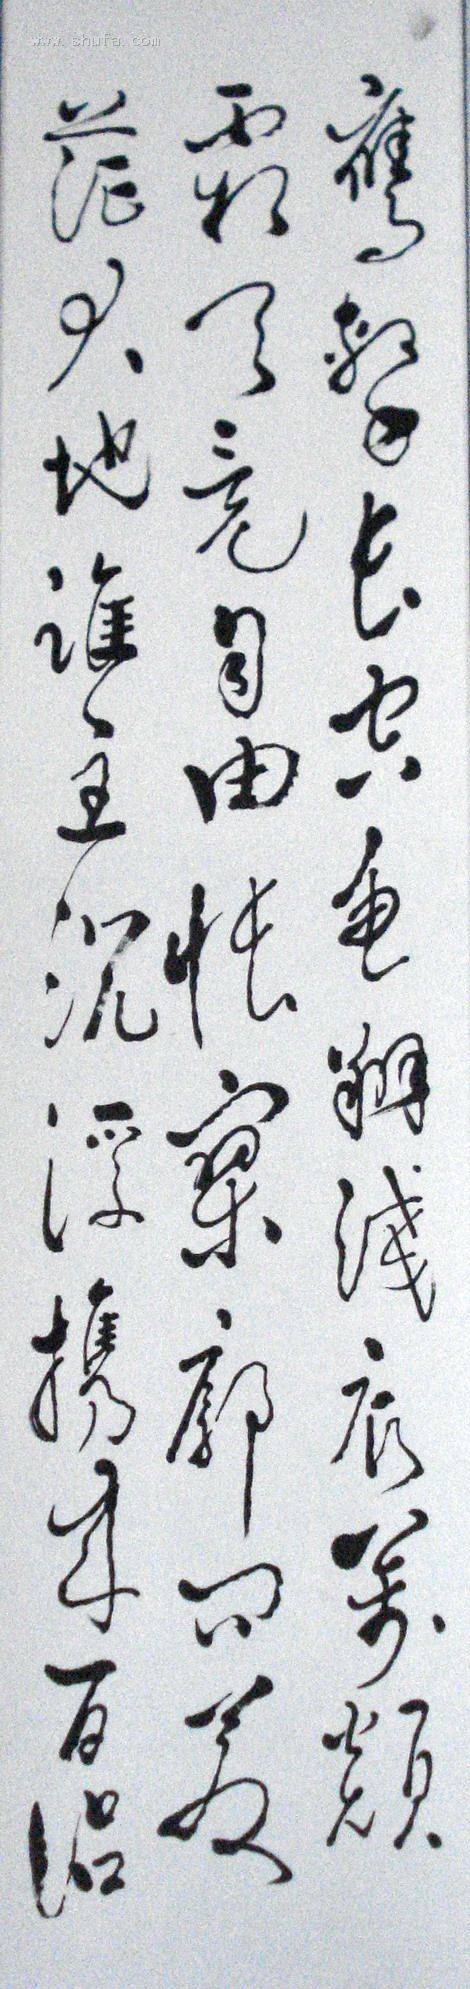 www.shufa.com
鹰擊长空鱼翔浅底萬類
霜天竞自由怅寥廓问苍
茫大地谁主沉浮携来百侣